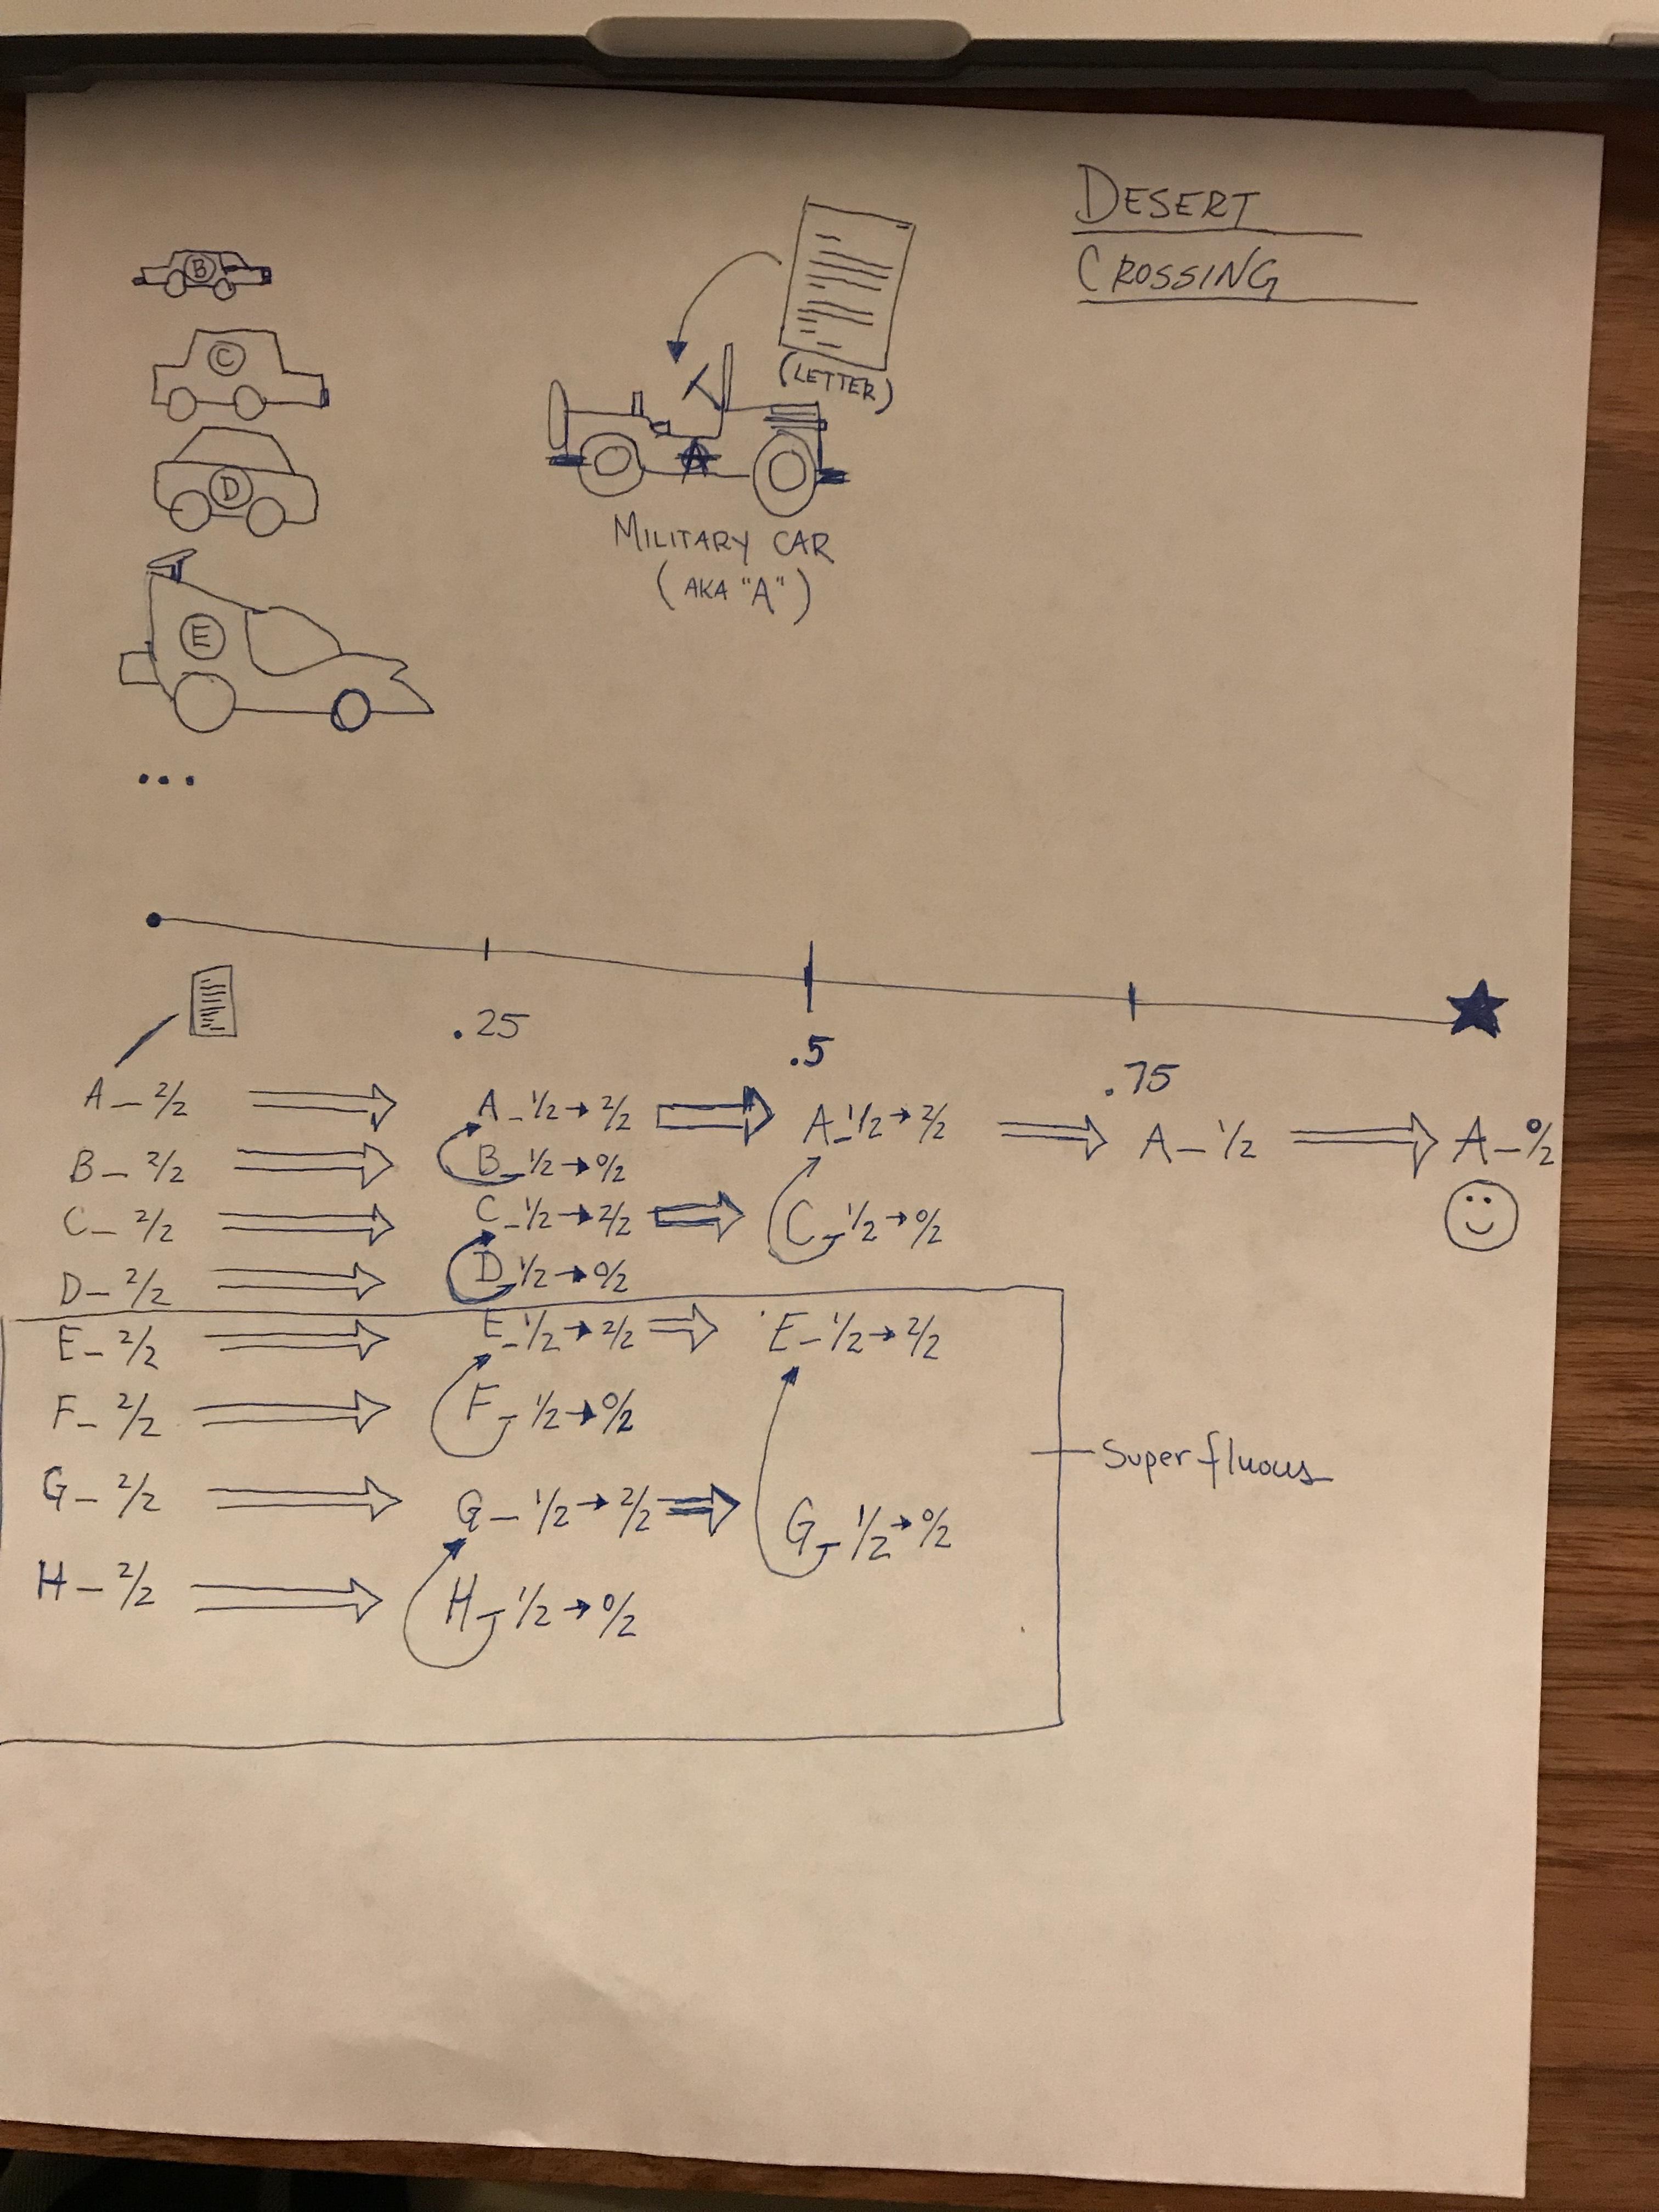 DESERT
CROSSING
B
C
D
E
...
(LETTER)
A
MILITARY CAR
(AKA "A")
.25
.5
.75
A – 2/2 ⇒ A – 1/2 → 2/2 ⇒ A – 1/2 → 2/2 ⇒ A – 1/2 ⇒ A – 0/2
B – 2/2 ⇒ B – 1/2 → 0/2
C – 2/2 ⇒ C – 1/2 → 2/2 ⇒ C – 1/2 → 0/2
D – 2/2 ⇒ D – 1/2 → 0/2
E – 2/2 ⇒ E – 1/2 → 2/2 ⇒ E – 1/2 → 2/2
F – 2/2 ⇒ F – 1/2 → 0/2
Superfluous
G – 2/2 ⇒ G – 1/2 → 2/2 ⇒ G – 1/2 → 0/2
H – 2/2 ⇒ H – 1/2 → 0/2